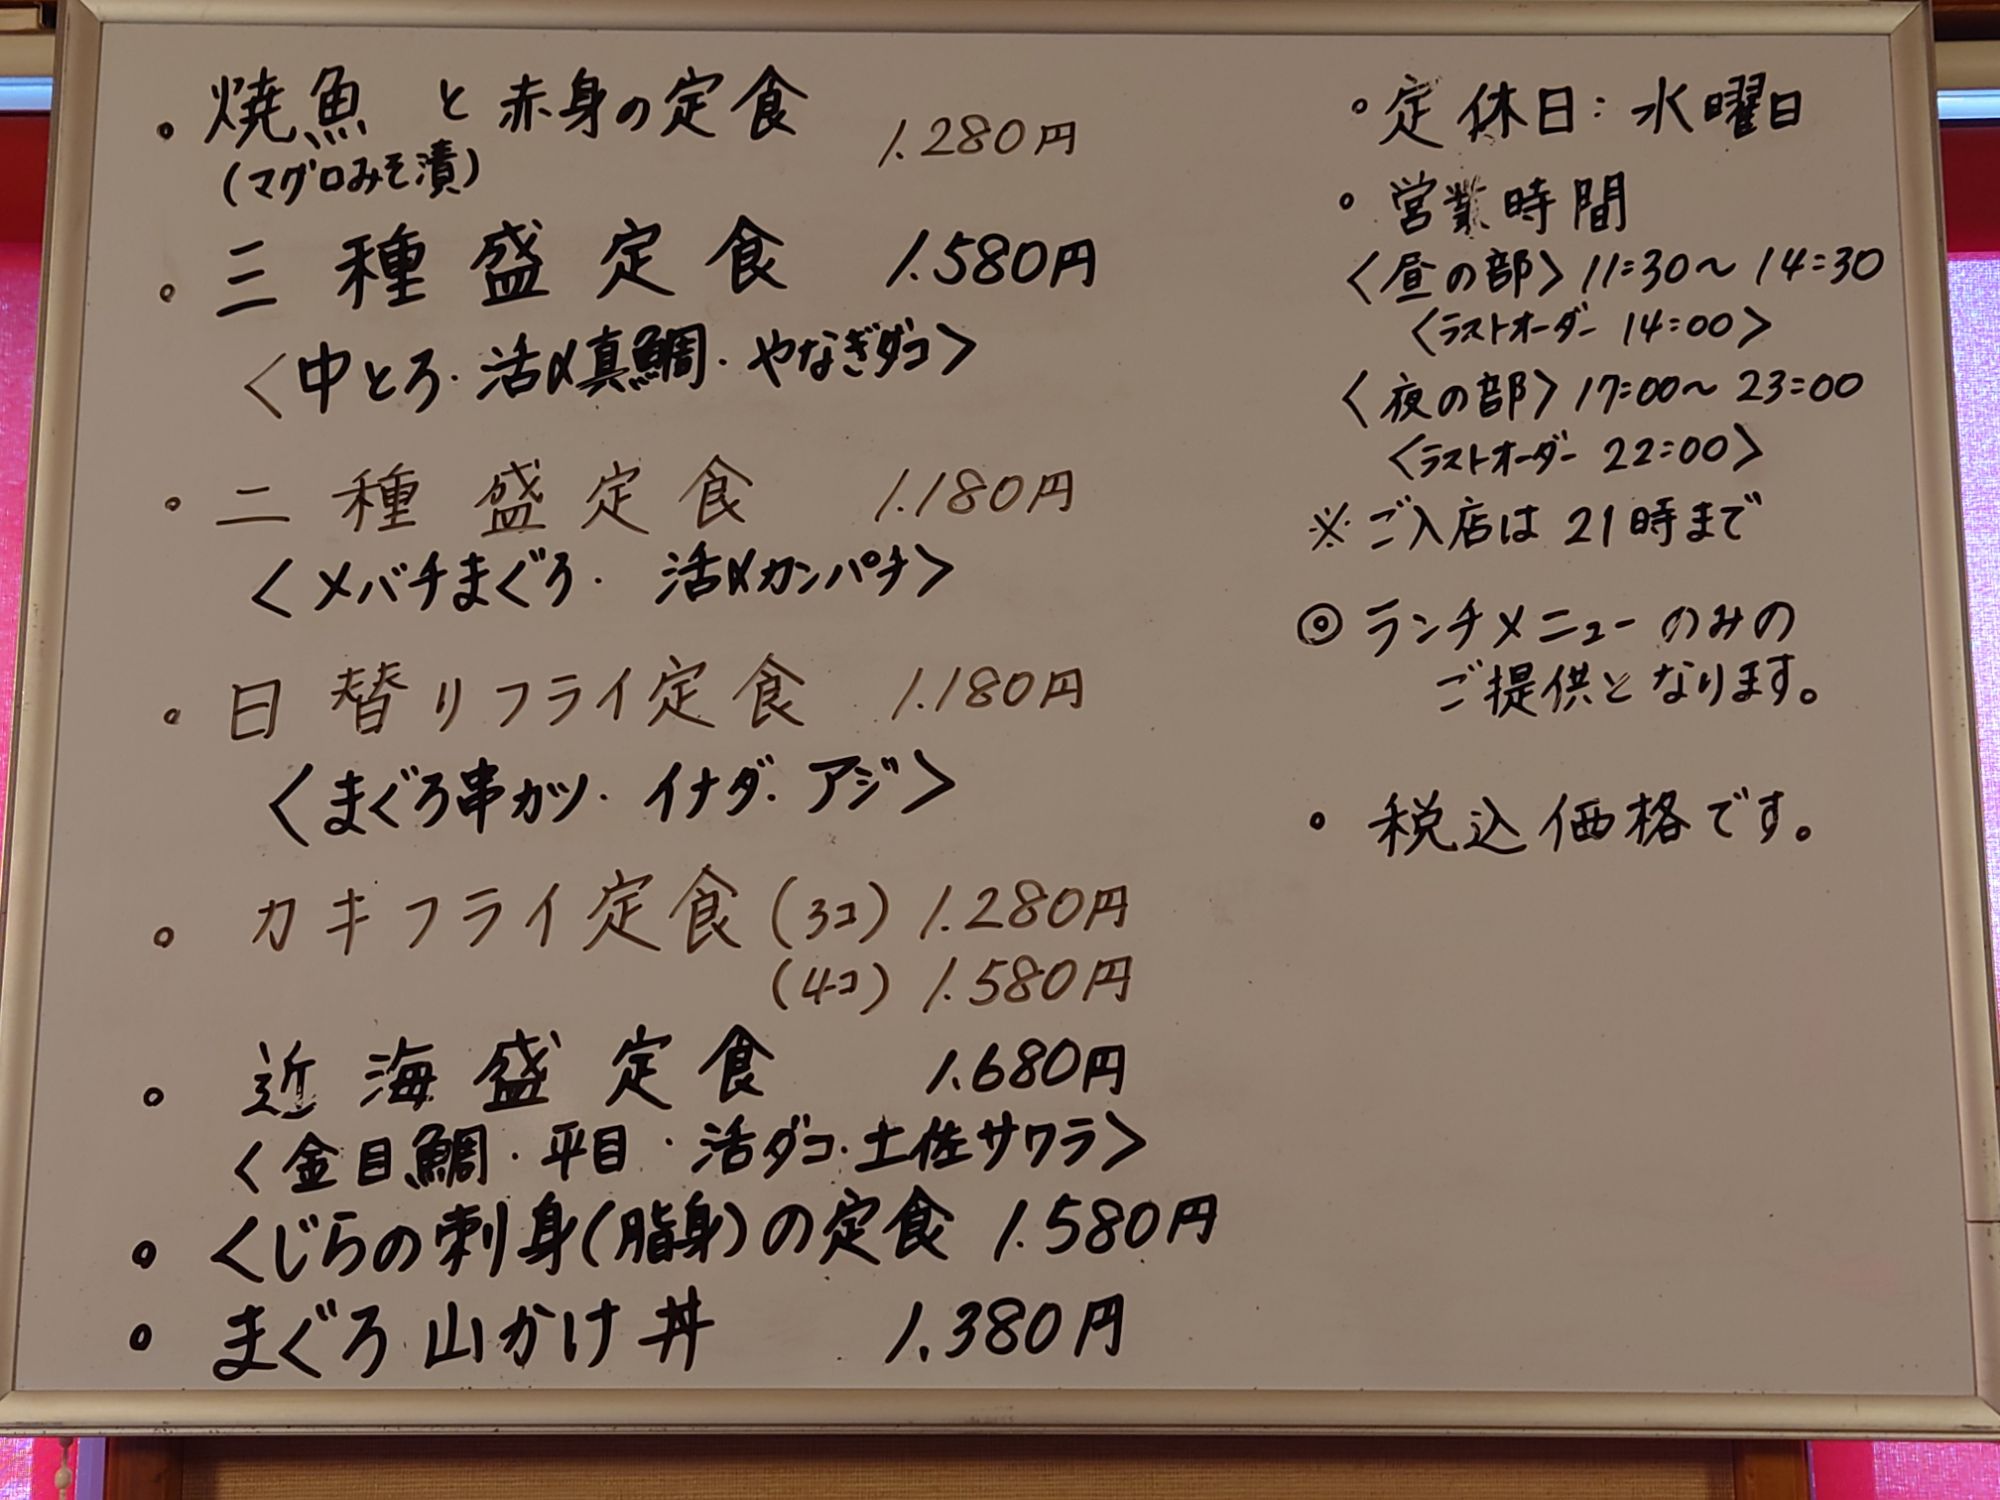 。焼魚 と 赤身の定食 1.280円
(マグロみそ漬)
。三種盛定食 1.580円
〈中とろ・活〆真鯛・やなぎダコ〉
。二種盛定食 1.180円
〈メバチまぐろ・活〆カンパチ〉
。日替りフライ定食 1.180円
〈まぐろ串カツ・イナダ・アジ〉
。カキフライ定食(3コ) 1.280円
(4コ) 1.580円
。近海盛定食 1.680円
〈金目鯛・平目・活ダコ・土佐サワラ〉
。くじらの刺身(脂身)の定食 1.580円
。まぐろ山かけ丼 1.380円
。定休日:水曜日
。営業時間
〈昼の部〉11:30〜14:30
〈ラストオーダー 14:00〉
〈夜の部〉17:00〜23:00
〈ラストオーダー 22:00〉
※ご入店は21時まで
◎ランチメニューのみの
ご提供となります。
。税込価格です。